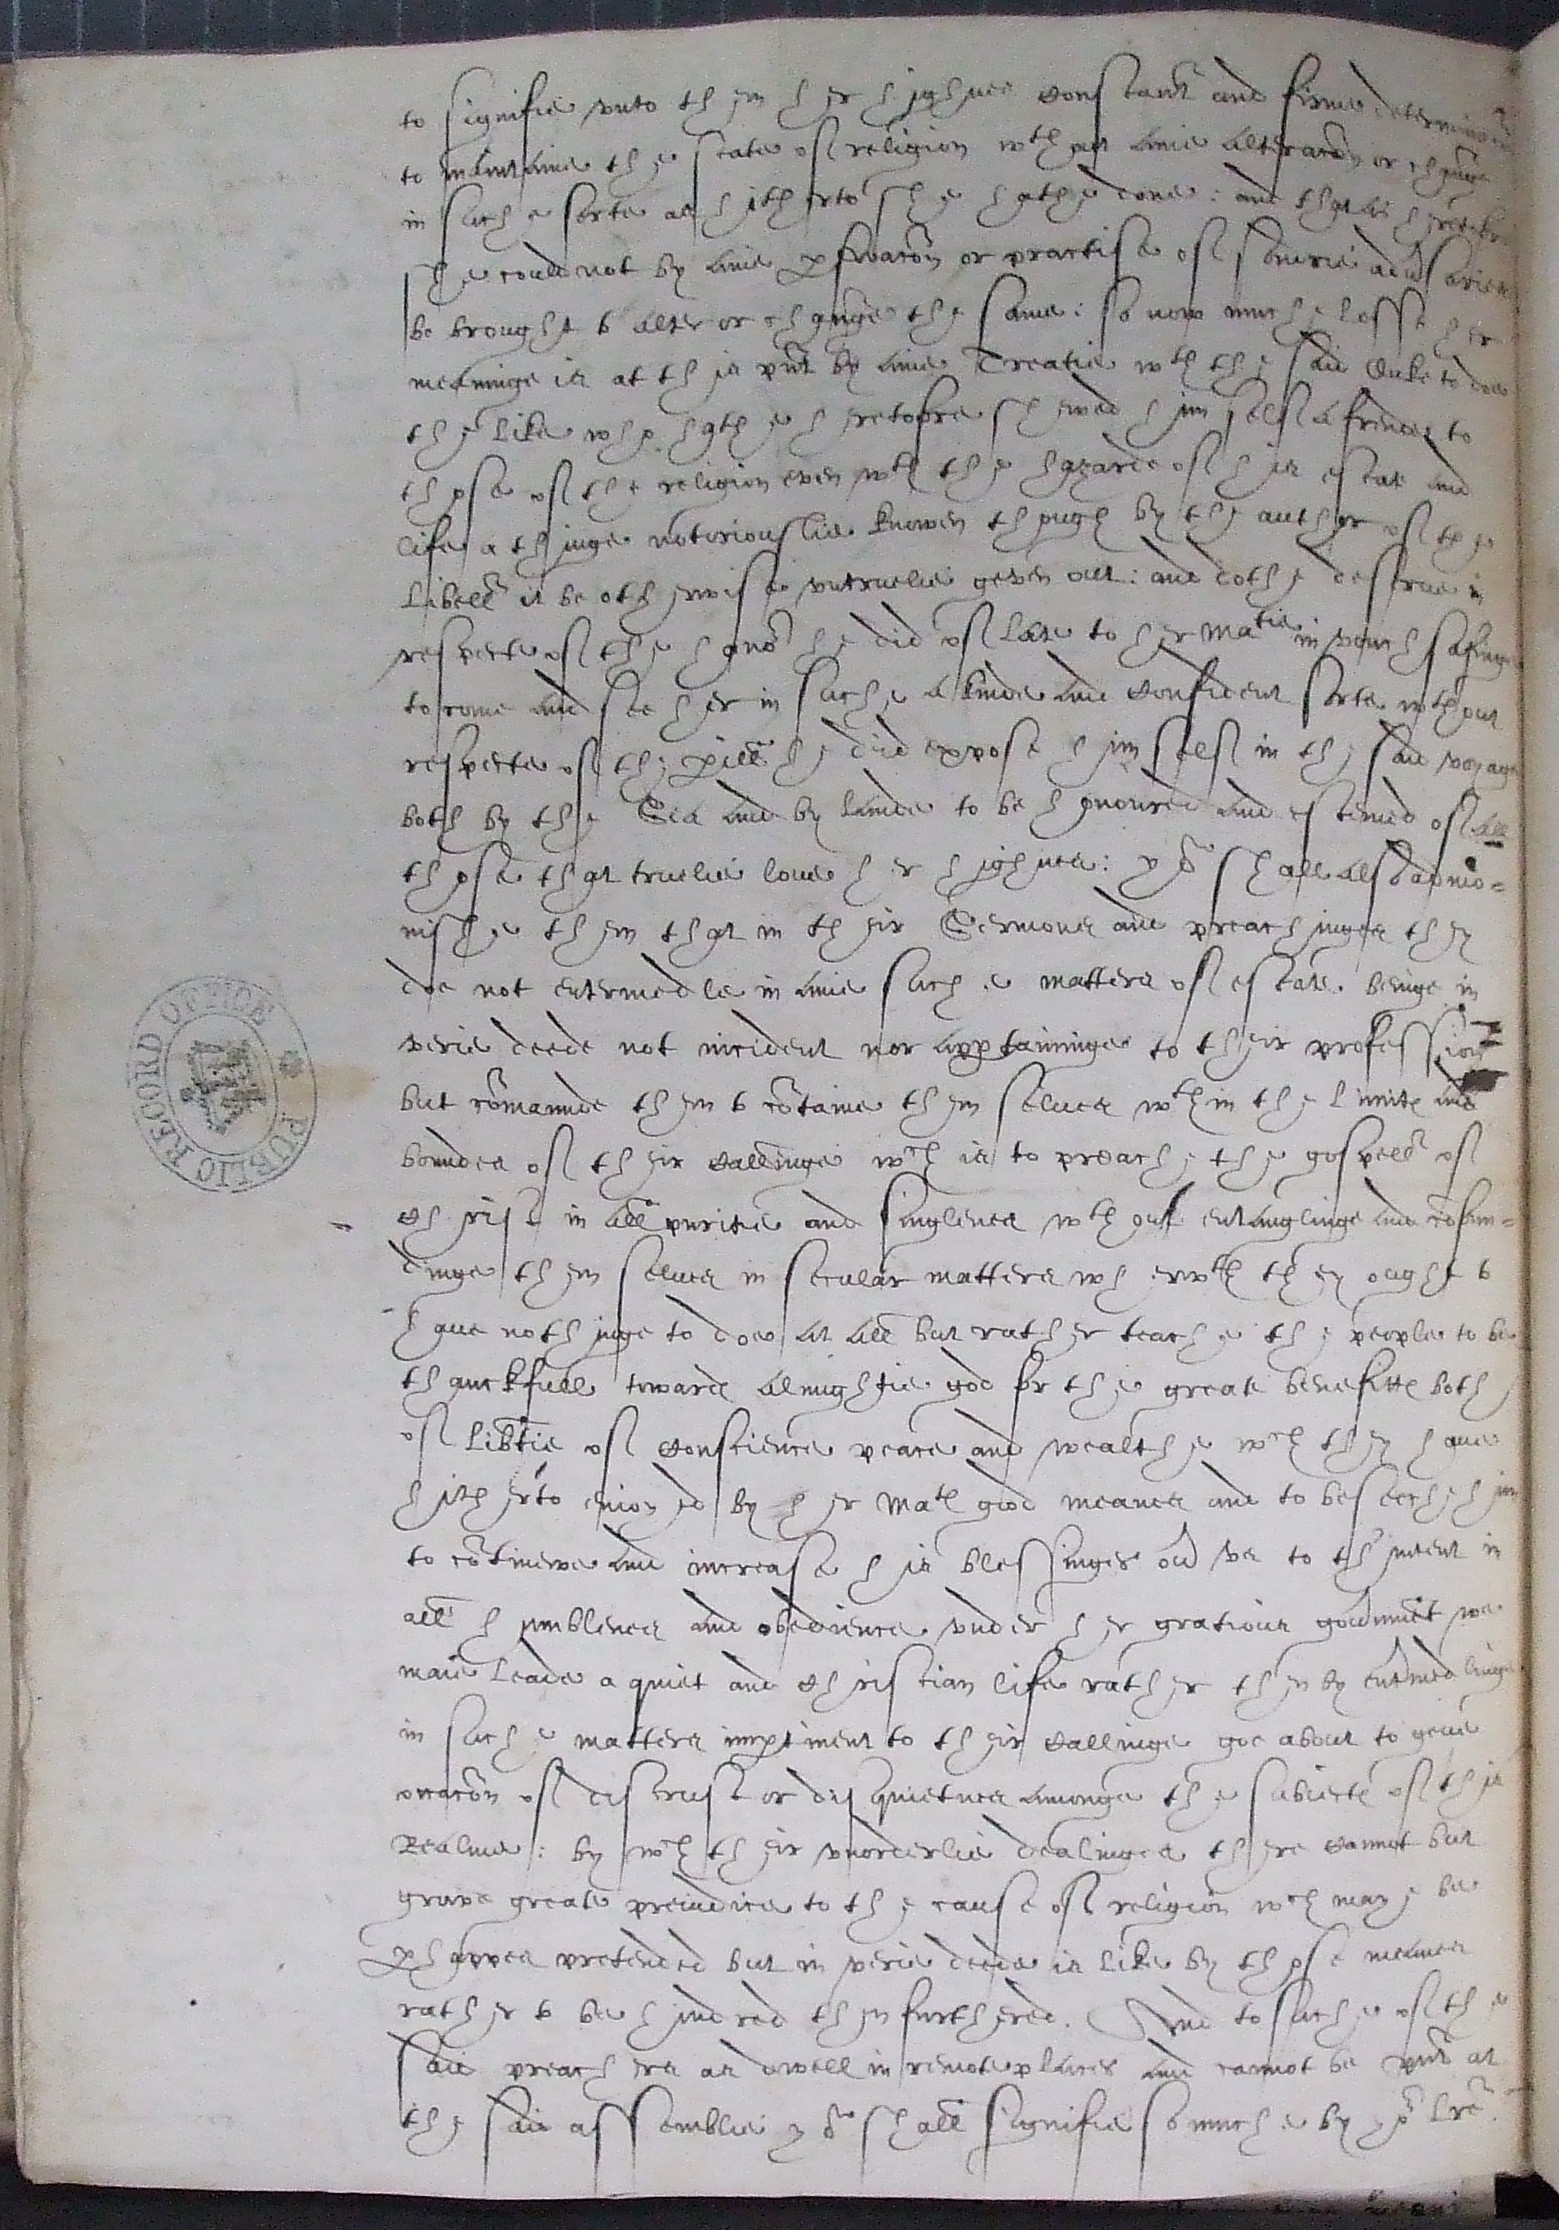 to signifie vnto them her highnes constant and firme determinacōn
to maintaine the state of religion wth out anie alteracōn or chaunge
in suche sorte as hitherto she hathe done: and that as heretofore
she could not by anie pswacōn or practise of sondrie adūsaries
be brought to alter or chaunge the same: so now muche lesse her
meaninge is at this pñt by anie Treatie wth the said Duke to doe
the like who hathe heretofore shewed him self a frinde to
those of the religion even wth the hazarde of his estate and
life a thinge notoriouslie knowen though by the author of the
Libell it be otherwise vntruelie geven out: and dothe deserue in
respecte of the honor he did of late to her Matie in vouchsafinge
to come and see her in suche a kinde and confident sorte wth out
respecte of the pill he did expose him self in the said voyage
both by the Sea and by lande to be honoured and estemed of all
those that truelie loue her highnes: yor shall also admo=
nishe them that in their Sermons and preachinges they
doe not entermedle in anie suche matters of estate beinge in
verie deede not incident nor apptaininge to their profession
but cōmaunde them to cōtaine them selues wth in the limits and
boundes of their callinge wch is to preache the gospell of
Christ in all puritie and singlenes wth out entanglinge and cōfun=
dinge them selues in secular matters wherwth they ought to
haue nothinge to doe at all but rather teache the people to be
thanckfull towards almightie god for the great benefitts both
of libtie of conscience peace and wealthe wch they haue
hitherto enioyed by her Mats good meanes and to beseeche him
to cōtinewe and increase his blessinges oū vs to th'intent in
all humblenes and obedience vnder her gratious goūnmēt we
maie leade a quiet and christian life rather then by entmedlinge
in suche matters imptinent to their callinge goe about to geue
occacōn of distrust or disquietnes amonge the subiects of this
Realme: by wch their vnorderlie dealinges there cannot but
growe greate preiudice to the cause of religion wch maye be
phappes pretended but in verie deede is like by those meanes
rather to be hindred then furthered. And to suche of the
said preachers as dwell in remote places and cannot be pñt at
the said assemblie yor shall signifie so muche by yor lre.
PUBLIC RECORD OFFICE